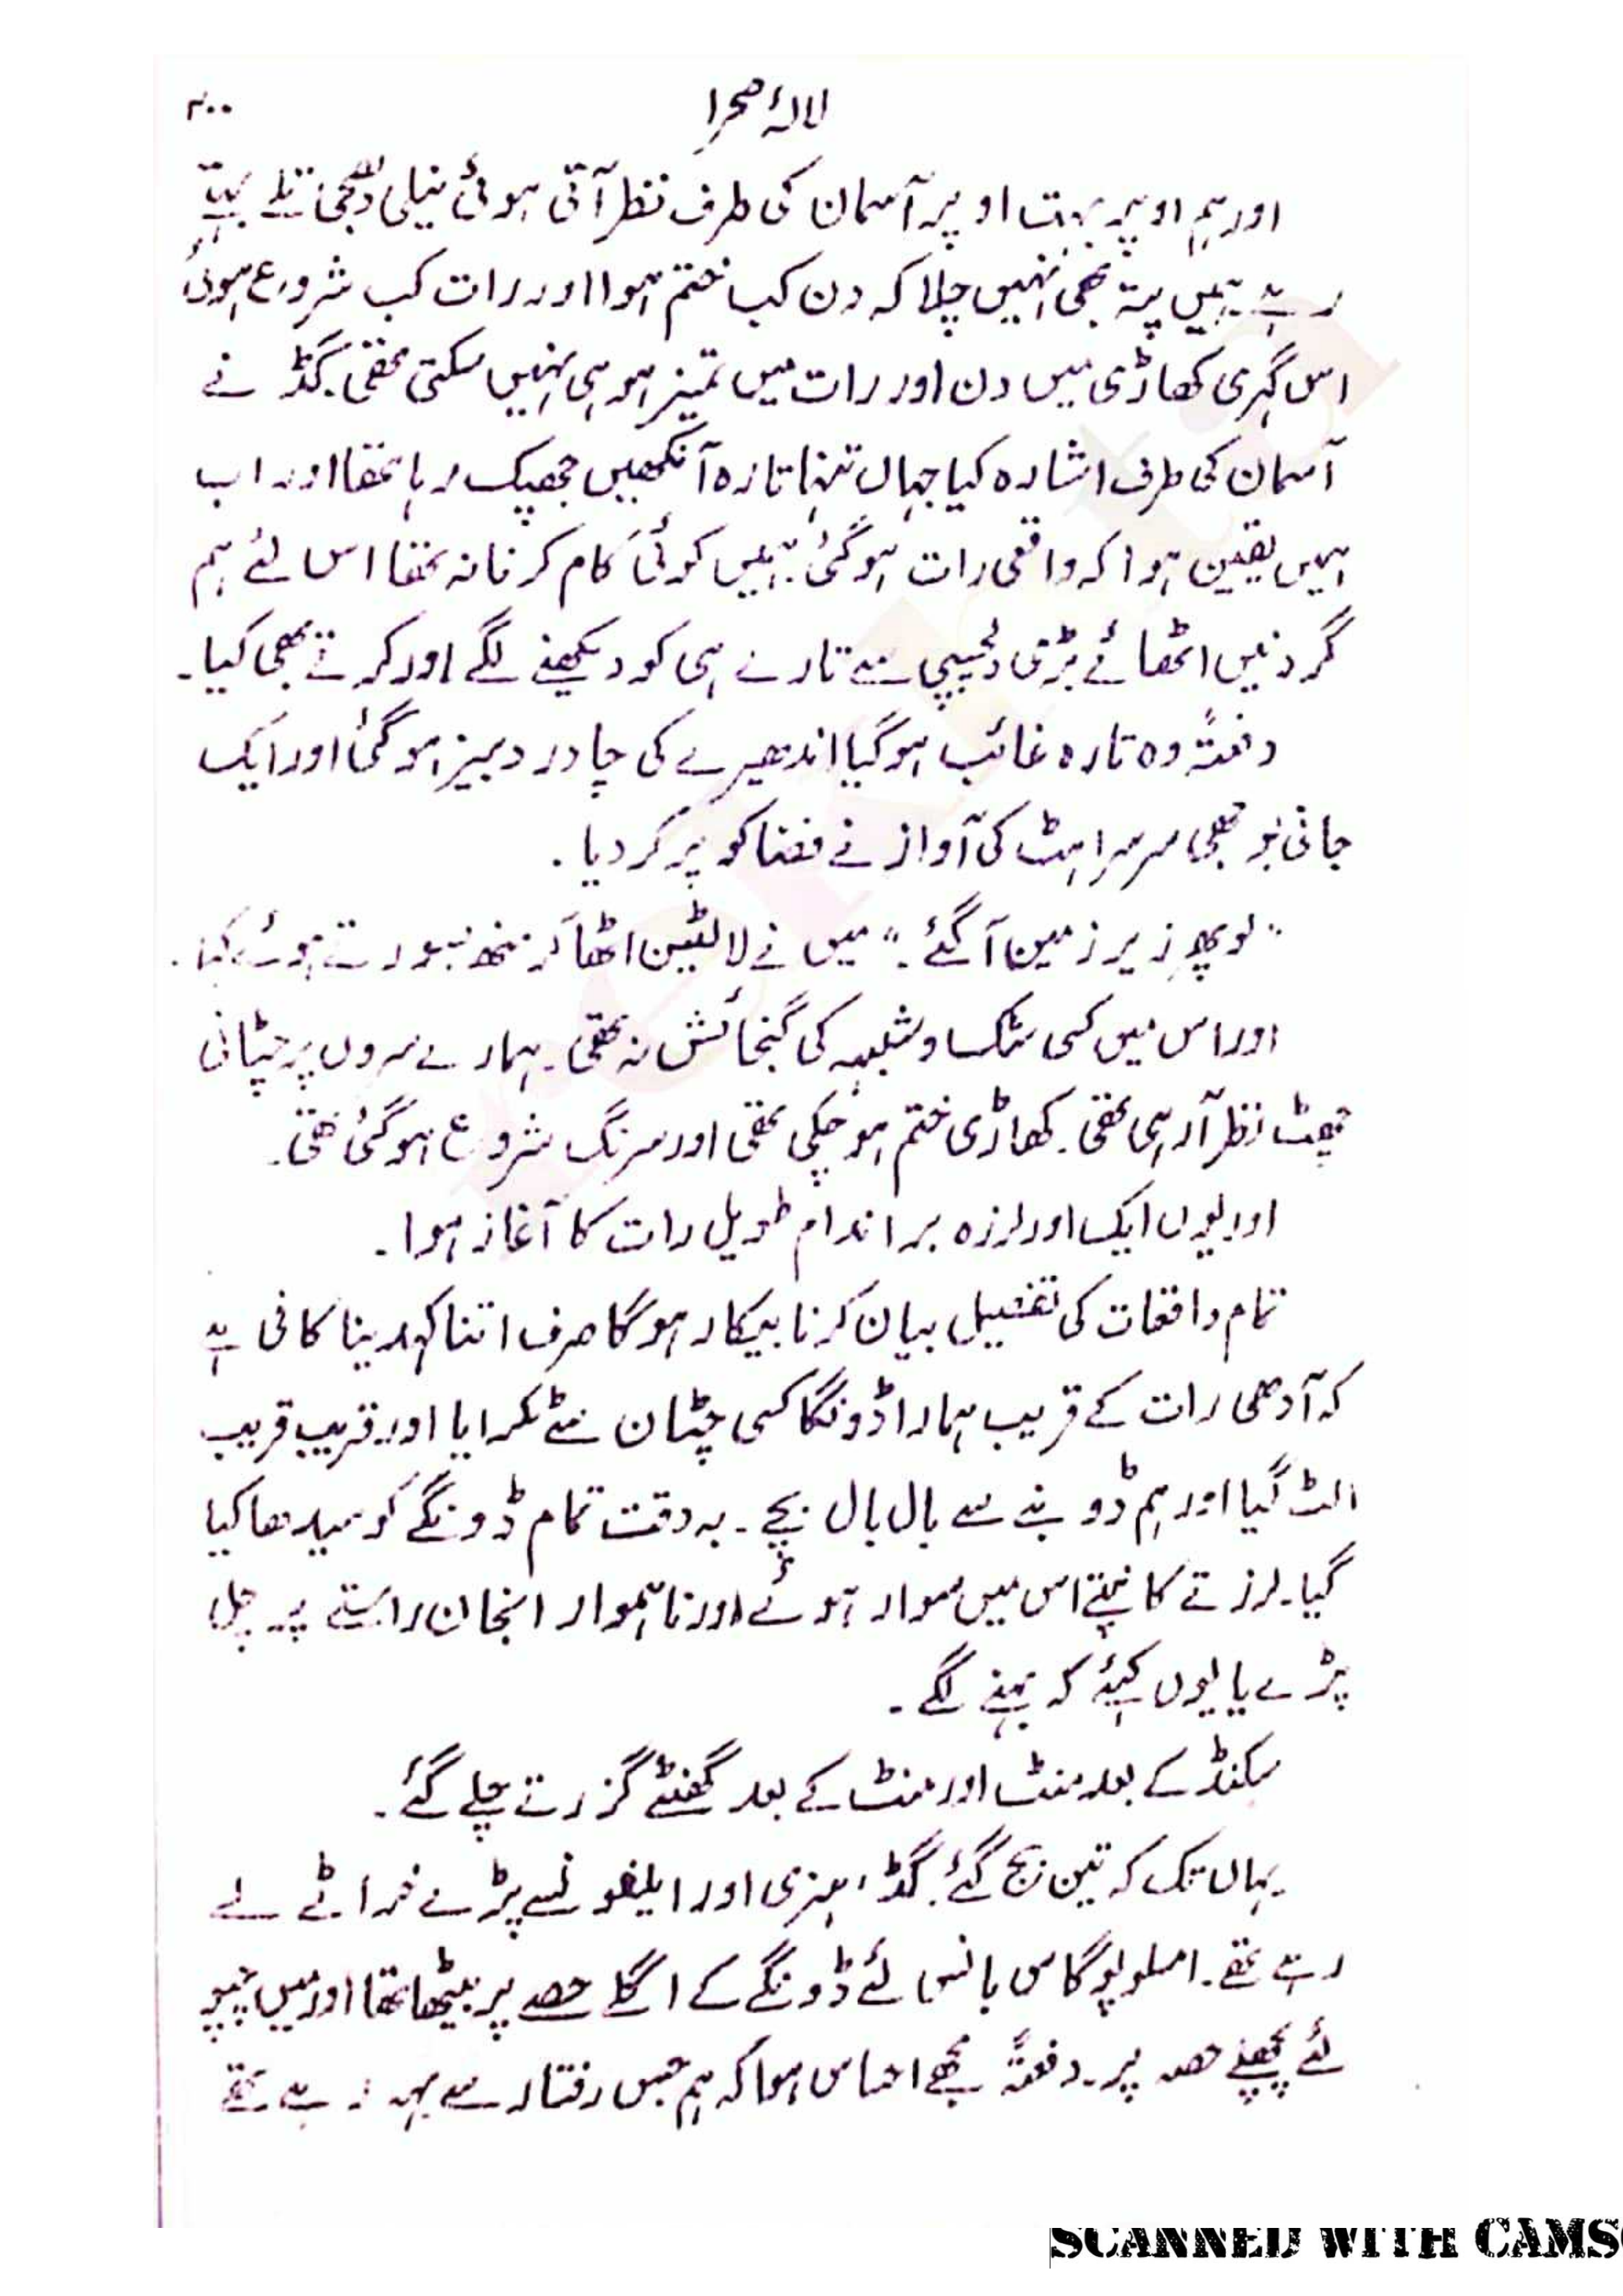 لالۂ صحرا
۲۰۰
اور ہم اوپر بہت اوپر آسمان کی طرف نظر آتی ہوئی نیلی دھجی تلے بہتے
رہے ہمیں پتہ بھی نہیں چلا کہ دن کب ختم ہوا اور رات کب شروع ہوئی
اس گہری کھاڑی میں دن اور رات میں تمیز ہو ہی نہیں سکتی تھی۔ گڈ نے
آسمان کی طرف اشارہ کیا جہاں تنہا تارہ آنکھیں جھپک رہا تھا اور اب
ہمیں یقین ہوا کہ واقعی رات ہو گئی۔ ہمیں کوئی کام کرنا نہ تھا اس لئے ہم
گردنیں اٹھائے بڑی دلچسپی سے تارے ہی کو دیکھنے لگے اور کرتے بھی کیا۔
دفعتہً وہ تارہ غائب ہو گیا اندھیرے کی چادر دبیز ہو گئی اور ایک
جانی بوجھی سرسراہٹ کی آواز نے فضا کو پر کر دیا۔
"لو پھر زیر زمین آ گئے۔" میں نے لالٹین اٹھا کر منھ بسورتے ہوئے کہا۔
اور اس میں کسی شک و شبہہ کی گنجائش نہ تھی۔ ہمارے سروں پر چٹانی
چھت نظر آ رہی تھی۔ کھاڑی ختم ہو چکی تھی اور سرنگ شروع ہو گئی تھی۔
اور یوں ایک اور لرزہ بر اندام طویل رات کا آغاز ہوا۔
تمام واقعات کی تفصیل بیان کرنا بیکار ہو گا صرف اتنا کہدینا کافی ہے
کہ آدھی رات کے قریب ہمارا ڈونگا کسی چٹان سے ٹکرایا اور قریب قریب
الٹ گیا اور ہم ڈوبنے سے بال بال بچے۔ بہ دقت تمام ڈونگے کو سیدھا کیا
گیا۔ لرزتے کانپتے اس میں سوار ہوئے اور ناہموار انجان راستے پر چل
پڑے یا یوں کہئے کہ بہنے لگے۔
سکنڈ کے بعد منٹ اور منٹ کے بعد گھنٹے گزرتے چلے گئے۔
یہاں تک کہ تین بج گئے۔ گڈ، ہنری اور ایلفونسے پڑے خراٹے لے
رہے تھے۔ املوپوگاس بانس لئے ڈونگے کے اگلے حصہ پر بیٹھا تھا اور میں چپو
لئے پچھلے حصہ پر۔ دفعتہً مجھے احساس ہوا کہ ہم جس رفتار سے بہہ رہے تھے
SCANNED WITH CAMS